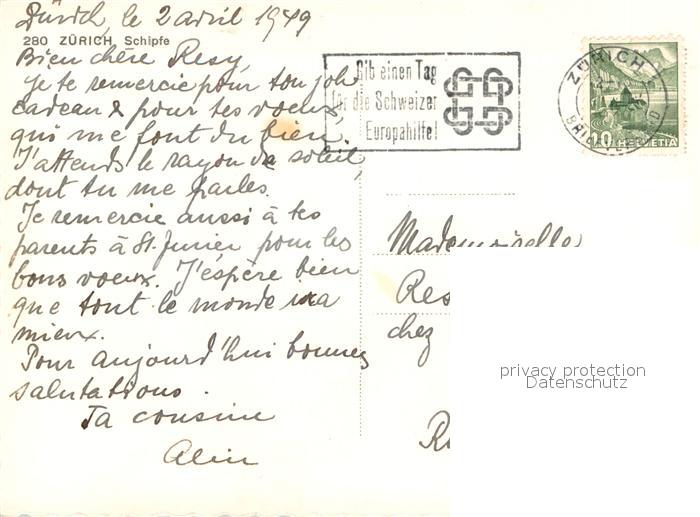 Zürich, le 2 avril 1949
280 ZÜRICH, Schipfe
Bien chère Resy
Je te remercie pour ton joli
cadeau & pour tes voeux,
qui me font du bien.
J'attends le rayon de soleil,
dont tu me parles.
Je remercie aussi à tes
parents à St. Junien pour les
bons voeux. J'éspère bien
que tout le monde ira
mieux.
Pour aujourd'hui bonnes
salutations.
Ta cousine
Gib einen Tag
für die Schweizer
Europahilfe!
ZÜRICH
BRIEFVERSAND
10 HELVETIA
Mademoiselle
Res
chez
R
privacy protection
Datenschutz